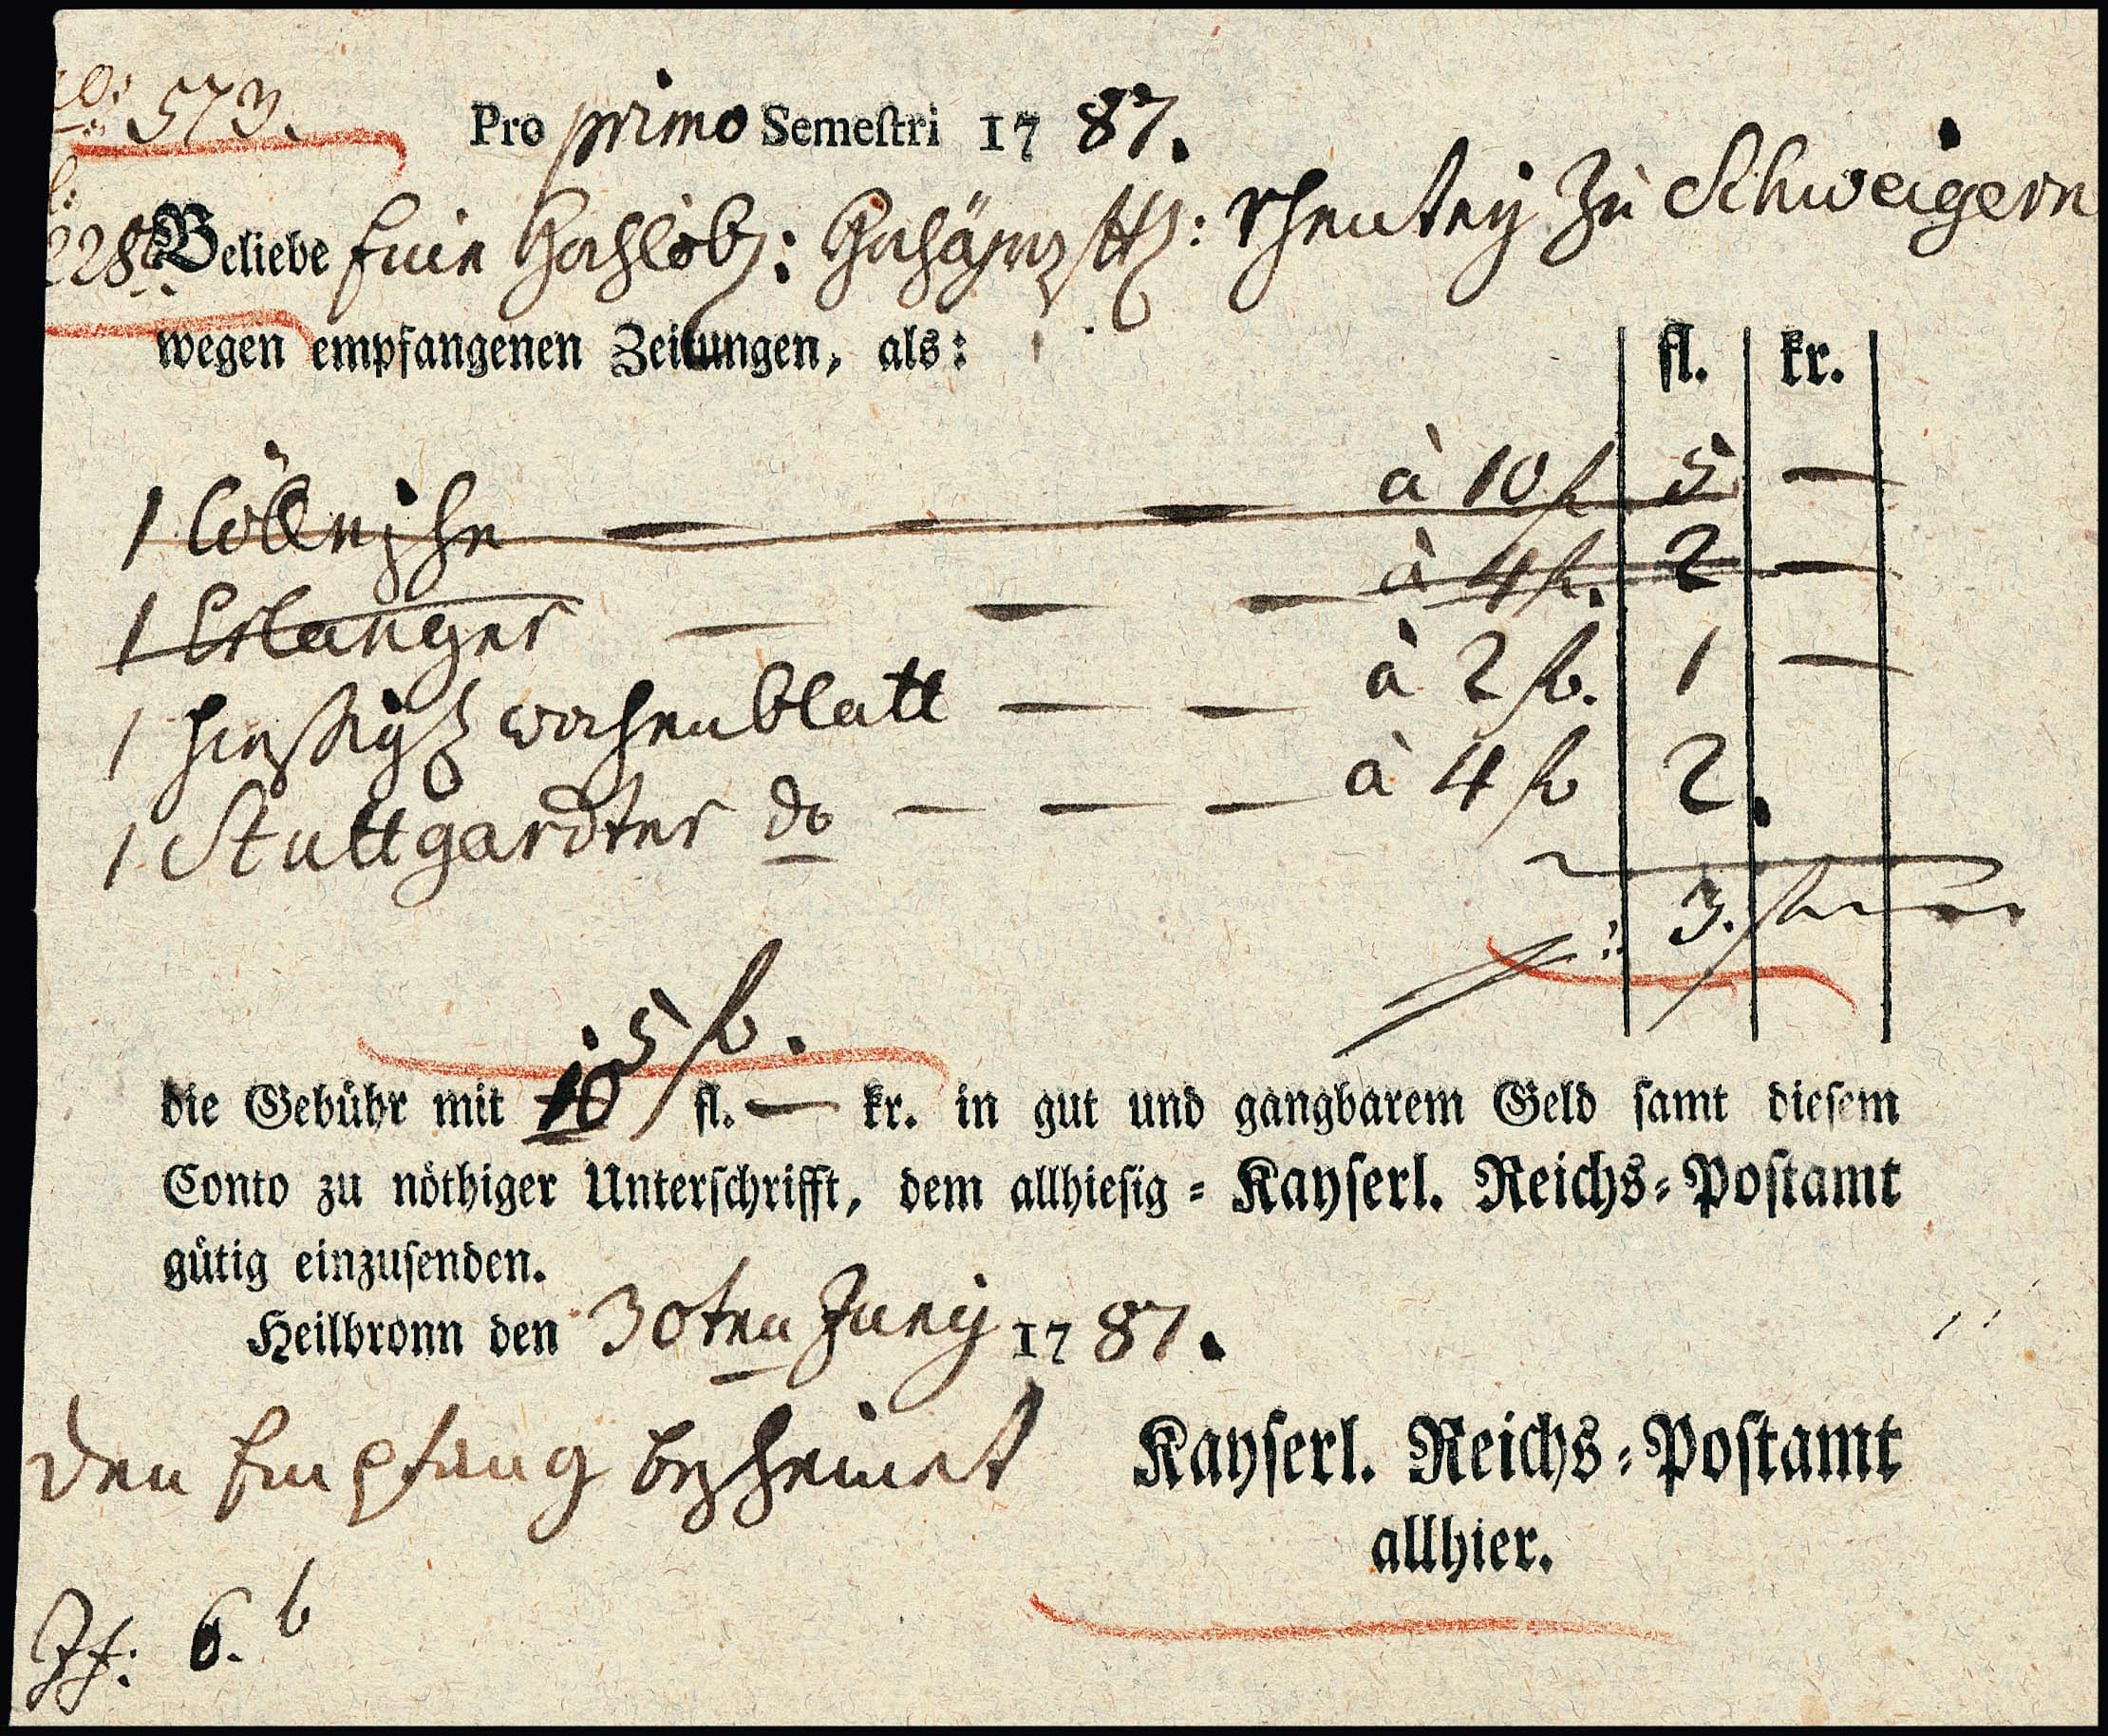 573.
Pro primo Semestri 1787.
228
Beliebe Eine Hochlöbl: Hochgräfl: Rhentey zu Schweigern
wegen empfangenen Zeitungen, als:
fl. kr.
1 Cöllnische — — — à 10 fl 5 —
1 Erlanger — — — à 4 fl. 2 —
1 hiessiges wochenblatt — — à 2 fl. 1 —
1 Stuttgardter do — — — à 4 fl 2.
3.
5 fl.
die Gebühr mit 10 fl. — kr. in gut und gangbarem Geld samt diesem
Conto zu nöthiger Unterschrifft, dem allhiesig = Kayserl. Reichs=Postamt
gütig einzusenden.
Heilbronn den 30ten Juny 1787.
den Empfang bescheinet
Kayserl. Reichs=Postamt
allhier.
6. b